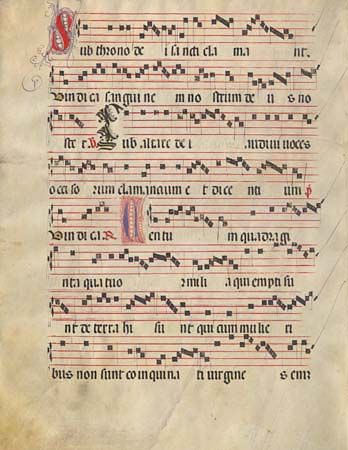 Sub throno de i sancti cla ma nt.
Vindica sanguinem nostrum deus no
ster. V Sub altare dei audivi voces
occisorum clamancium et dicentium P
Vindica. R Centum quadragi
nta quatuor milia qui empti su
nt de terra hi sunt qui cum mulieri
bus non sunt coinquinati virgines enim